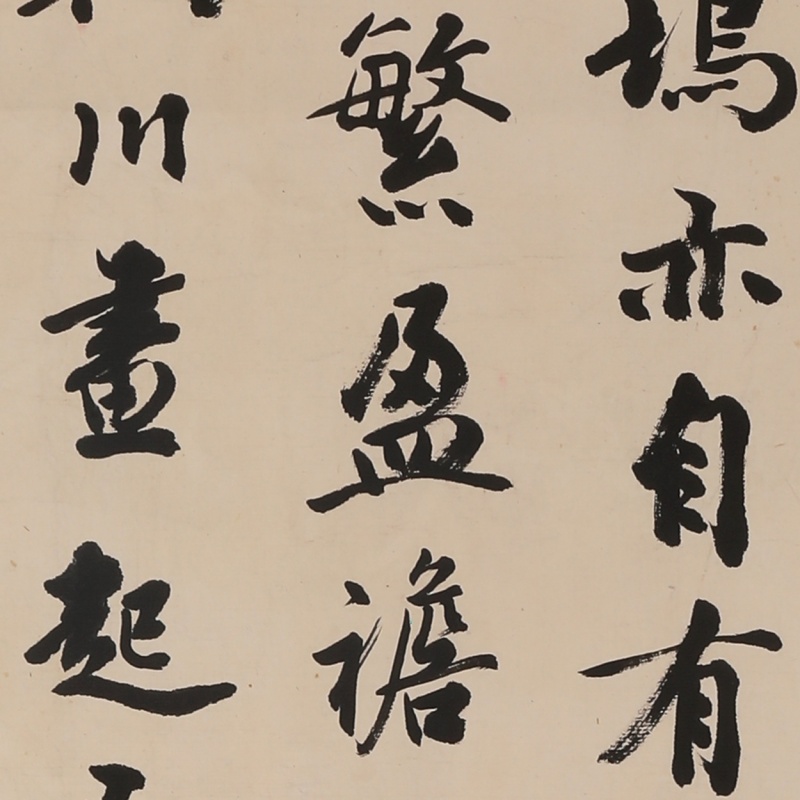 塢亦自有
繁盈襜
川畫起